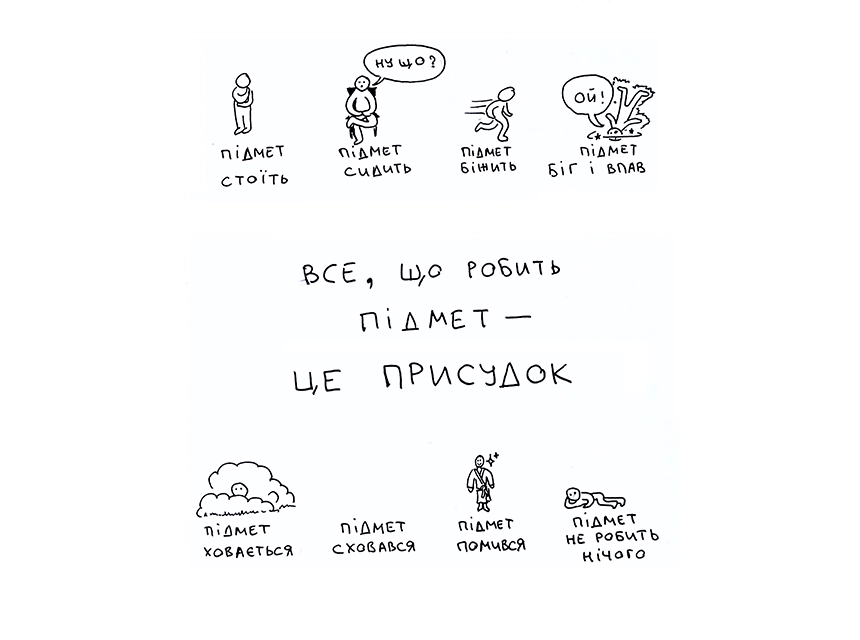 НУ ЩО?
ОЙ!
ПІДМЕТ
СТОЇТЬ
ПІДМЕТ
СИДИТЬ
ПІДМЕТ
БІЖИТЬ
ПІДМЕТ
БІГ І ВПАВ
ВСЕ, ЩО РОБИТЬ
ПІДМЕТ —
ЦЕ ПРИСУДОК
ПІДМЕТ
ХОВАЄТЬСЯ
ПІДМЕТ
СХОВАВСЯ
ПІДМЕТ
ПОМИВСЯ
ПІДМЕТ
НЕ РОБИТЬ
НІЧОГО